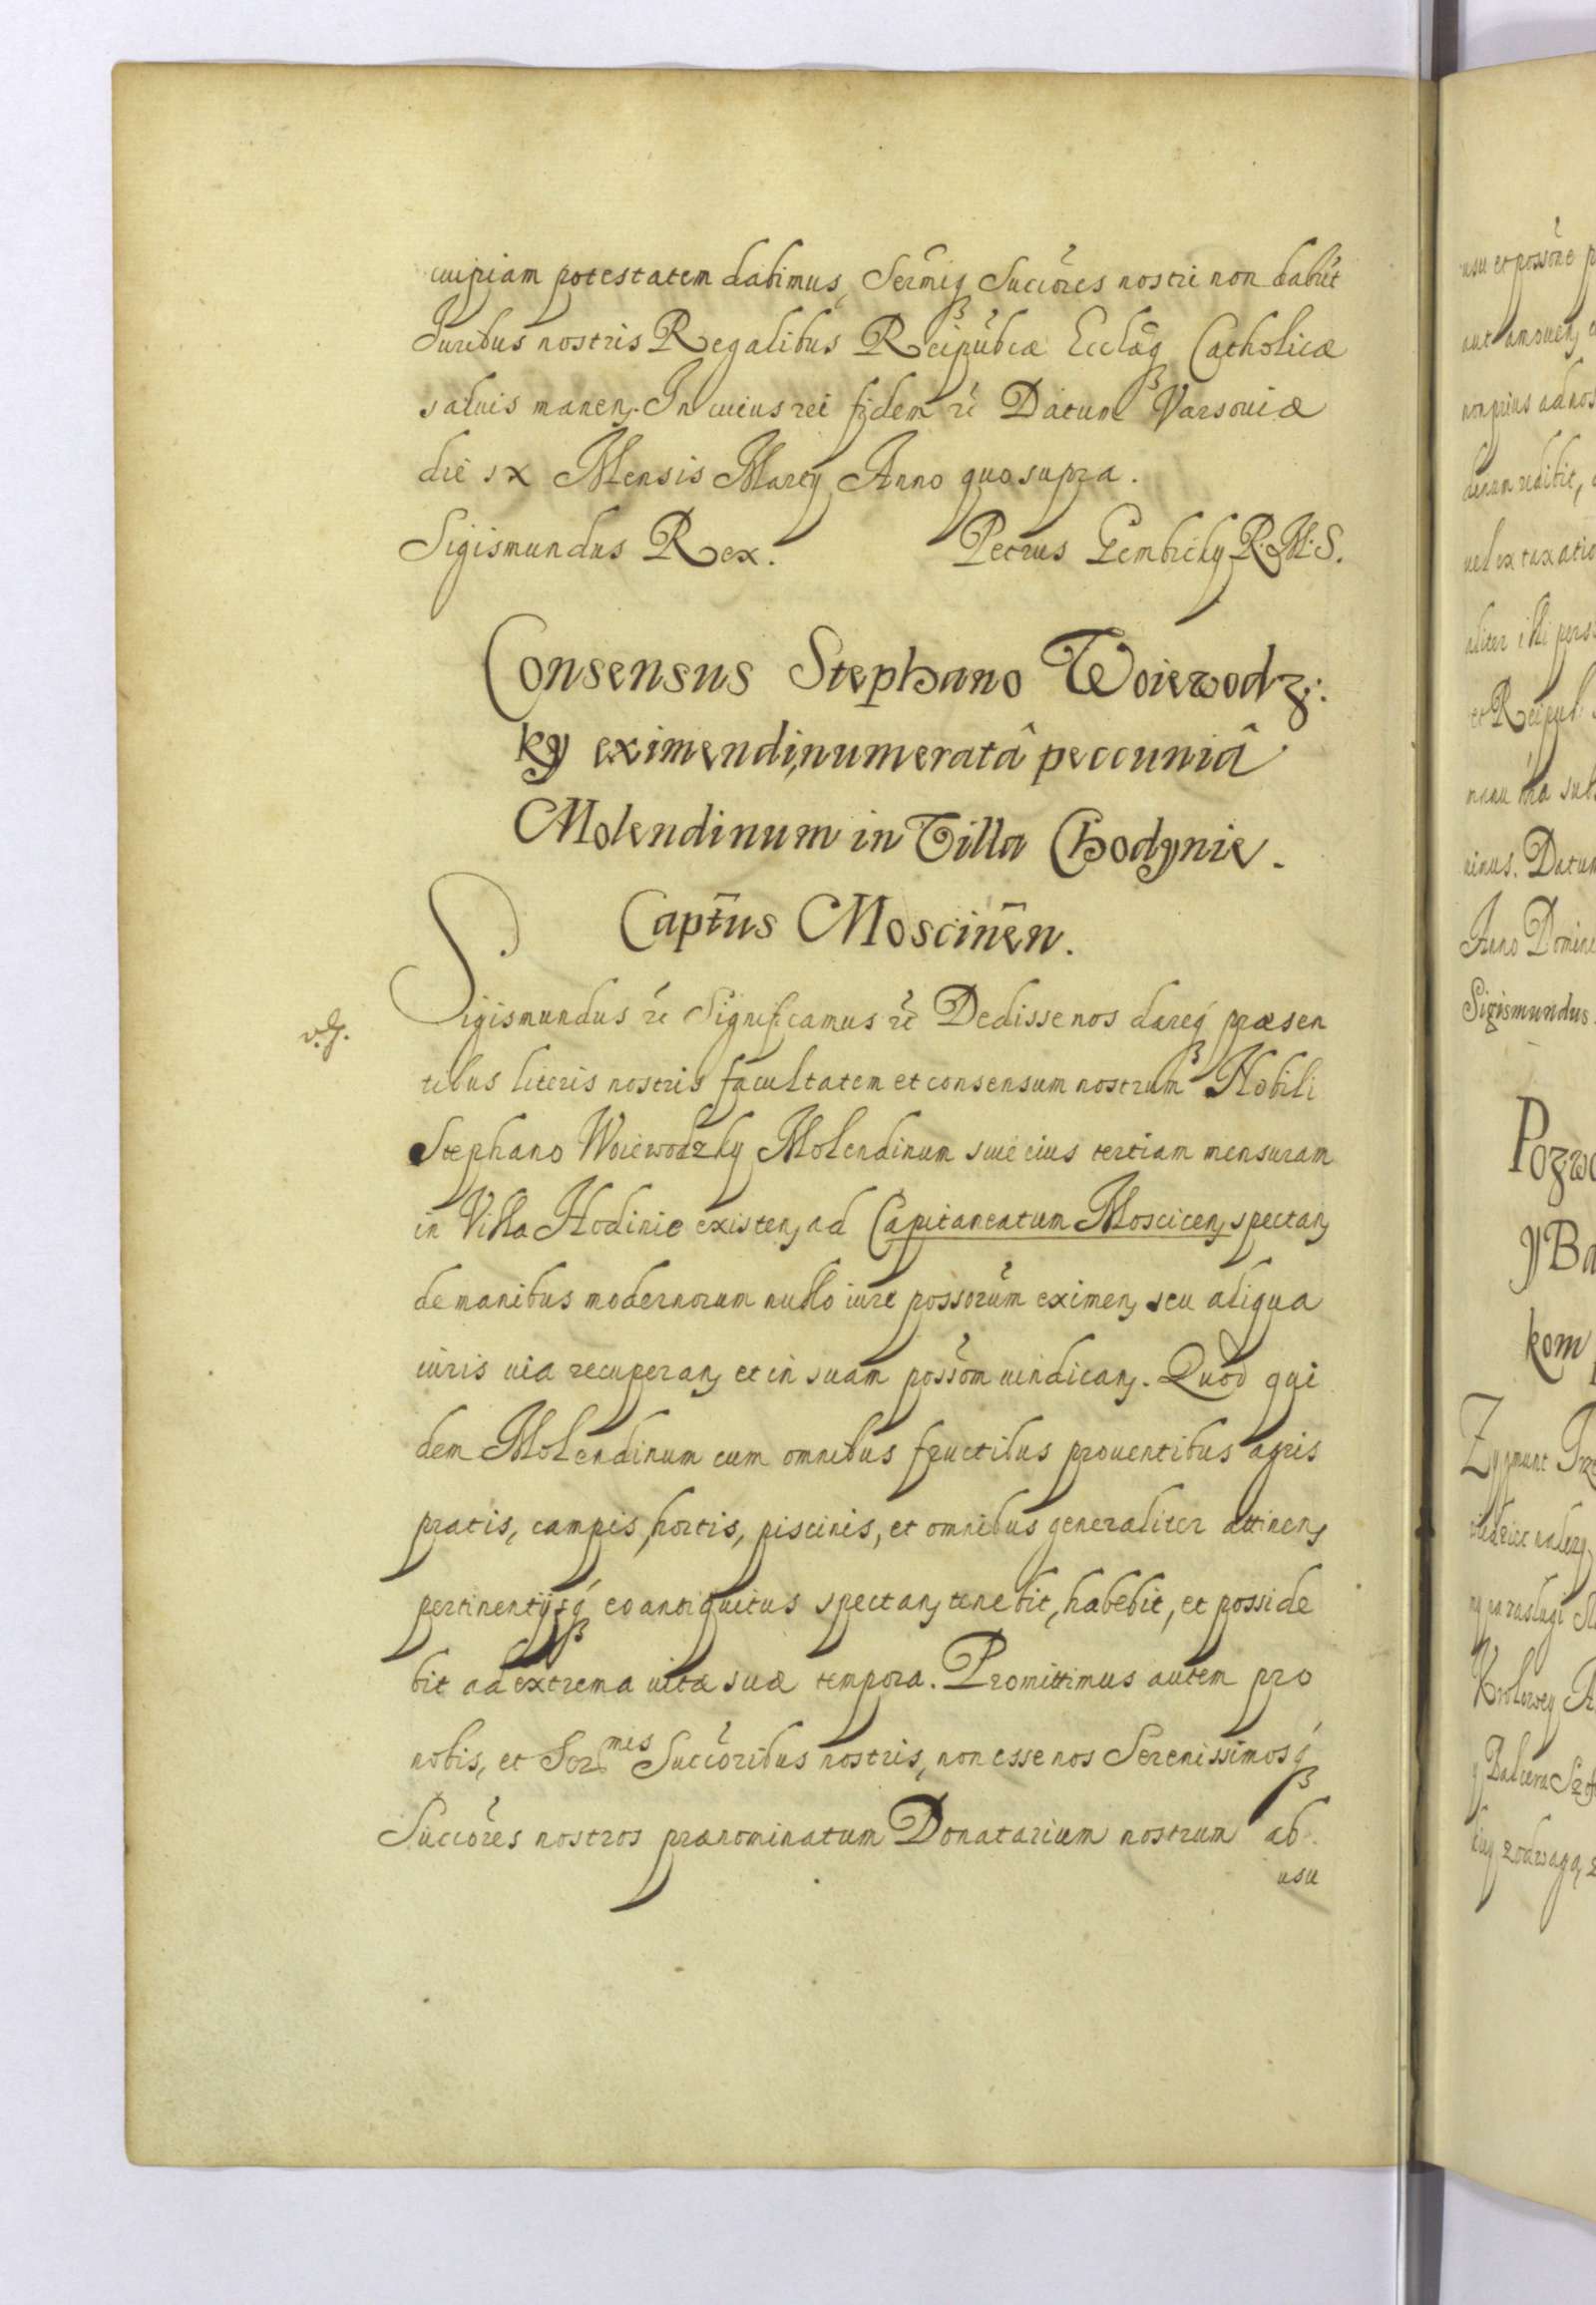 cuipiam potestatem dabimus, Sermiq Succōres nostri non dabūt
Iuribus nostris Regalibus Reipubcæ Ecclāq Catholicæ
saluis manen. In cuius rei fidem rc Datum Varsouiæ
die ıx Mensis Marty Anno quo supra.
Sigismundus Rex. Petrus Gembicky R. M. S.
Consensus Stephano Woiewodz:
ky eximendi, numeratâ peccuniâ
Molendinum in Villa Chodynie.
Captūs Moscinēn.
v. g.
Sigismundus rc Significamus rc Dedisse nos dareq præsen
tibus literis nostris facultatem et consensum nostrum Nobili
Stephano Woiewodzky Molendinum siue eius tertiam mensuram
in Villa Hodinie existen, ad Capitaneatum Moscicen, spectan,
de manibus modernorum nullo iure possorūm eximen, seu aliqua
iuris uia recuperan, et in suam possōm uindican. Quod qui
dem Molendinum cum omnibus fructibus prouentibus agris
pratis, campis, hortis, piscinis, et omnibus generaliter attinen,
pertinentysq eo antiquitus spectan, tenebit, habebit, et posside
bit ad extrema uitæ suæ tempora. Promittimus autem pro
nobis, et Ser.mis Succōribus nostris, non esse nos Serenissimosq
Succōres nostros prænominatum Donatarium nostrum ab
usu
usu et possōne
non prius ad nos
uel ex taxatio
aliter illi pers
et Reipub
Datum
Anno Domini
Sigismundus
Pozwo
y Ba
kom
Zygmunt Trze